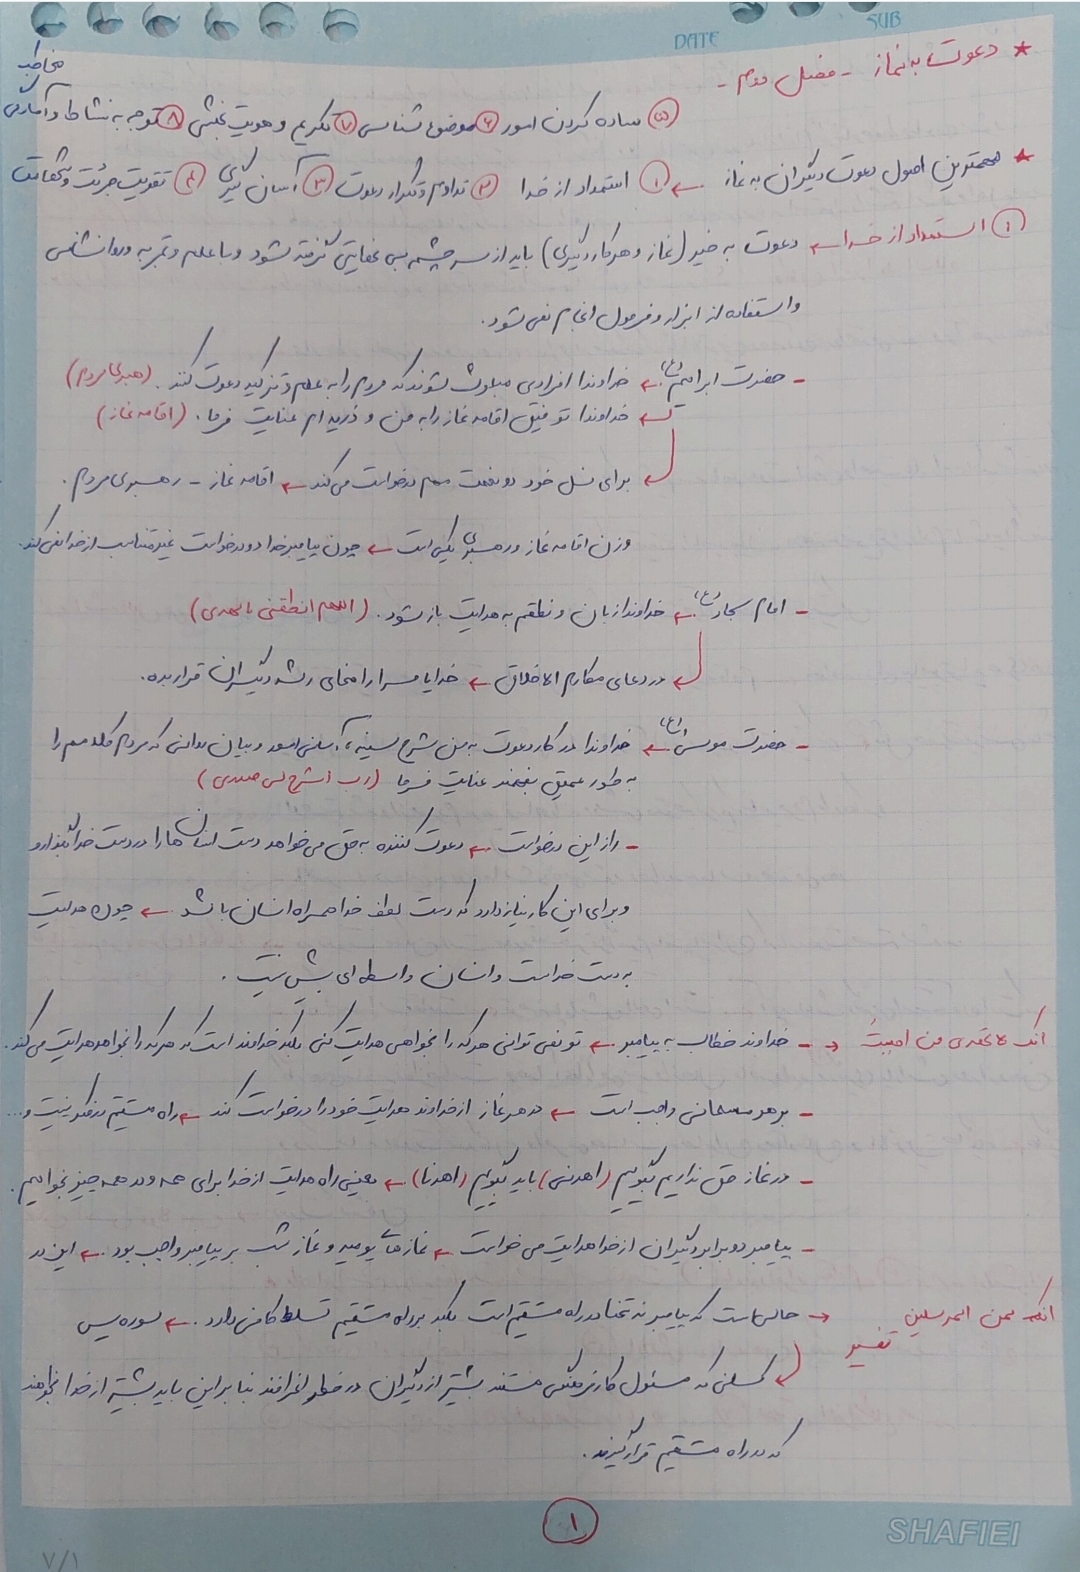 SUB
DATE
★ دعوت به نماز - فصل دوم -
⑤ ساده کردن امور ⑥ موضوع شناسی ⑦ تکریم و هویت بخشی ⑧ توجه به نشاط و آمادگی مخاطب
★ مهمترین اصول دعوت دیگران به نماز ← ① استمداد از خدا ② تداوم و تکرار دعوت ③ آسان گیری ④ تقویت جرئت و شهامت
① استمداد از خدا ← دعوت به خیر (نماز و هر کار دیگری) باید از سرچشمه بی نهایتی گرفته شود و با علم و تجربه و روانشناسی
و استفاده از ابزار و فرمول انجام نمی شود.
- حضرت ابراهیم (ع) ← خداوندا افرادی مبعوث شوند که مردم را به علم و تزکیه دعوت کنند. (رهبری مردم)
← خداوندا توفیق اقامه نماز را به من و ذریه ام عنایت فرما. (اقامه نماز)
← برای نسل خود دو نعمت مهم درخواست می کند ← اقامه نماز - رهبری مردم.
وزن اقامه نماز و رهبری یکی است ← چون پیامبر خدا دو درخواست غیرمتناسب از خدا نمی کند.
- امام سجاد (ع) ← خداوندا زبان و نطقم به هدایت باز شود. (اللهم انطقنی بالهدی)
← در دعای مکارم الاخلاق ← خدایا مرا راهنمای رشد دیگران قرار بده.
- حضرت موسی (ع) ← خداوندا در کار دعوت به من شرح سینه، آسانی امور و بیان روانی که مردم کلامم را
به طور عمیق بفهمند عنایت فرما (رب اشرح لی صدری)
- راز این درخواست ← دعوت کننده به حق می خواهد دست انسان ها را در دست خدا بگذارد
و برای این کار نیاز دارد که دست لطف خدا همراه انسان باشد ← چون هدایت
به دست خداست و انسان واسطه ای بیش نیست.
انک لا تهدی من احببت → - خداوند خطاب به پیامبر ← تو نمی توانی هر که را بخواهی هدایت کنی بلکه خداوند است که هر که را بخواهد هدایت می کند.
- بر هر مسلمانی واجب است ← در هر نماز از خداوند هدایت خود را درخواست کند ← راه مستقیم در فکر و نیت و...
- در نماز حق نداریم بگوییم (اهدنی) باید بگوییم (اهدنا) ← یعنی راه هدایت از خدا برای همه و در همه چیز بخواهیم.
- پیامبر دو برابر دیگران از خدا هدایت می خواست ← نمازهای یومیه و نماز شب بر پیامبر واجب بود ← این در
انک لمن المرسلین → حالی است که پیامبر نه تنها در راه مستقیم است بلکه بر راه مستقیم تسلط کامل دارد. ← سوره یس
تفسیر ← کسانی که مسئول کار فرهنگی هستند بیشتر از دیگران در خطر انحرافند بنابراین باید بیشتر از خدا بخواهند
که در راه مستقیم قرار گیرند.
۱
SHAFIEI
۷/۱